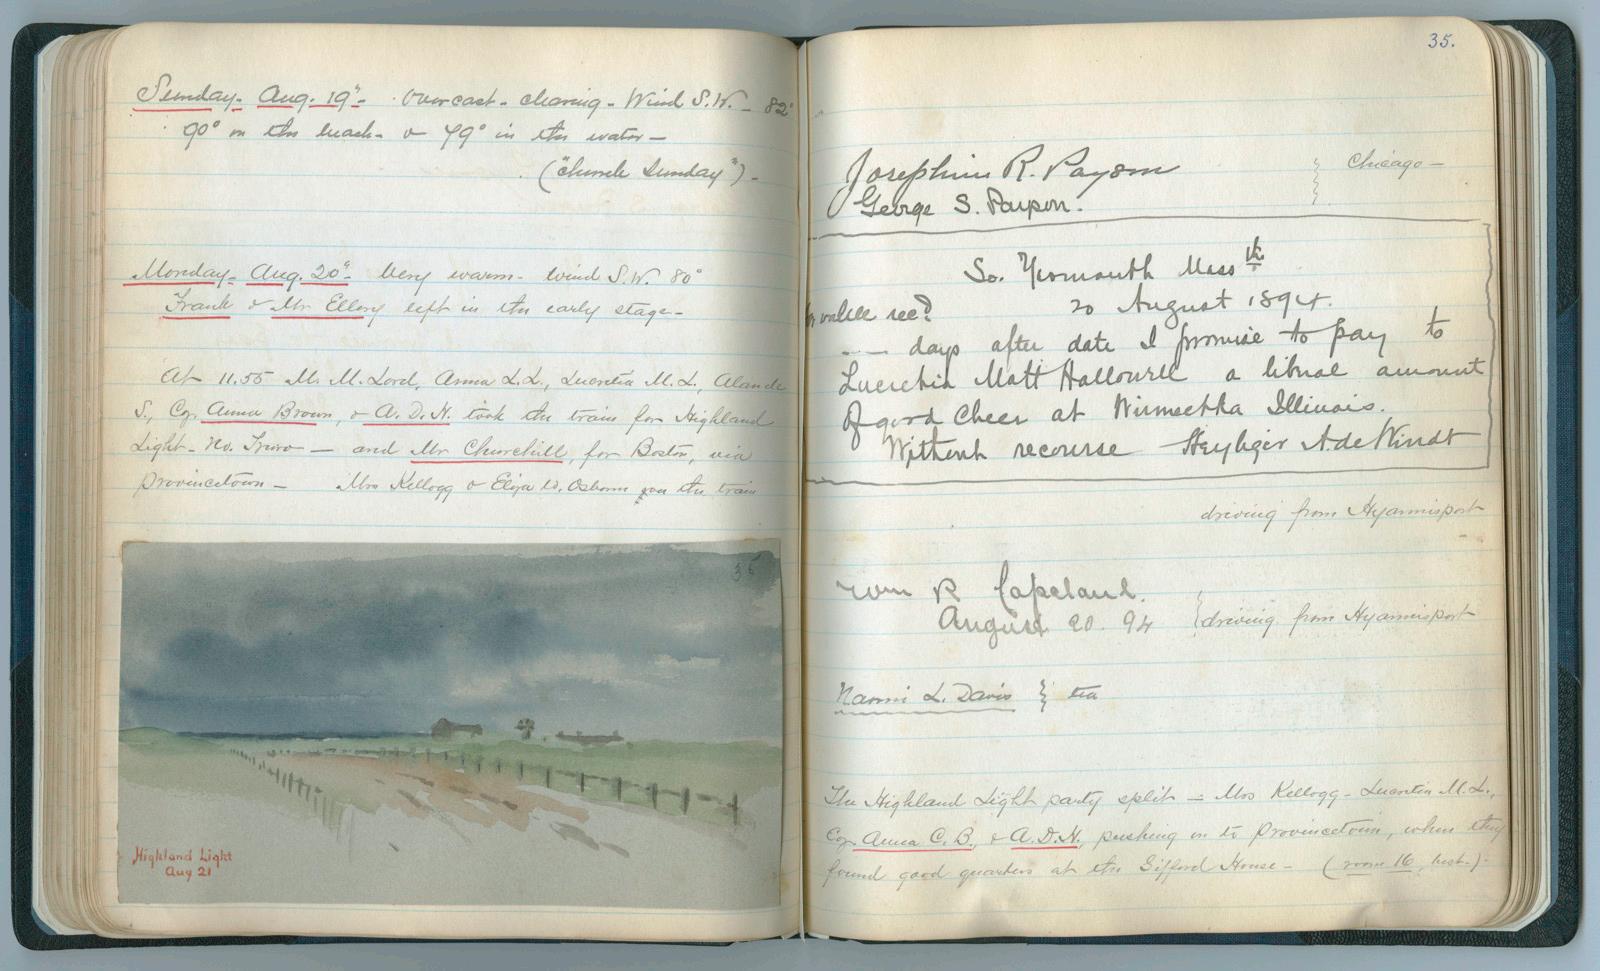 Sunday- Aug. 19"- Overcast- clearing- Wind S.W.- 82°
90° on the beach- & 79° in the water-
("church Sunday")-
Monday- Aug. 20"- Very warm- Wind S.W. 80°
Frank & Mr Ellery left in the early stage-
At 11.55 M. M. Lord, Anna L.L., Lucretia M.L.,
S., Anna Brown, & A. D. H. took the train for Highland
Light- No. Truro - and Mr Churchill, for Boston, via
Provincetown- Mrs Kellogg & Eliza W. Osborn on the train
36
Highland Light
Aug 21
35.
Josephine R. Payson
George S. Payson.
Chicago-
So. Yarmouth Mass
value rec?
20 August 1894.
--- days after date I promise to pay to
Lucretia Mott Hallowell a liberal amount
of good cheer at Winnetka Illinois.
Without recourse Heyliger A. de Windt
driving from Hyannisport
Wm R Copeland.
August 20. 94
driving from Hyannisport
Naomi L. Davis } tea
The Highland Light party split - Mrs Kellogg- Lucretia M.L.,
Anna C. B., & A.D.H., pushing on to Provincetown, where they
found good quarters at the Gifford House- (room 16, )-